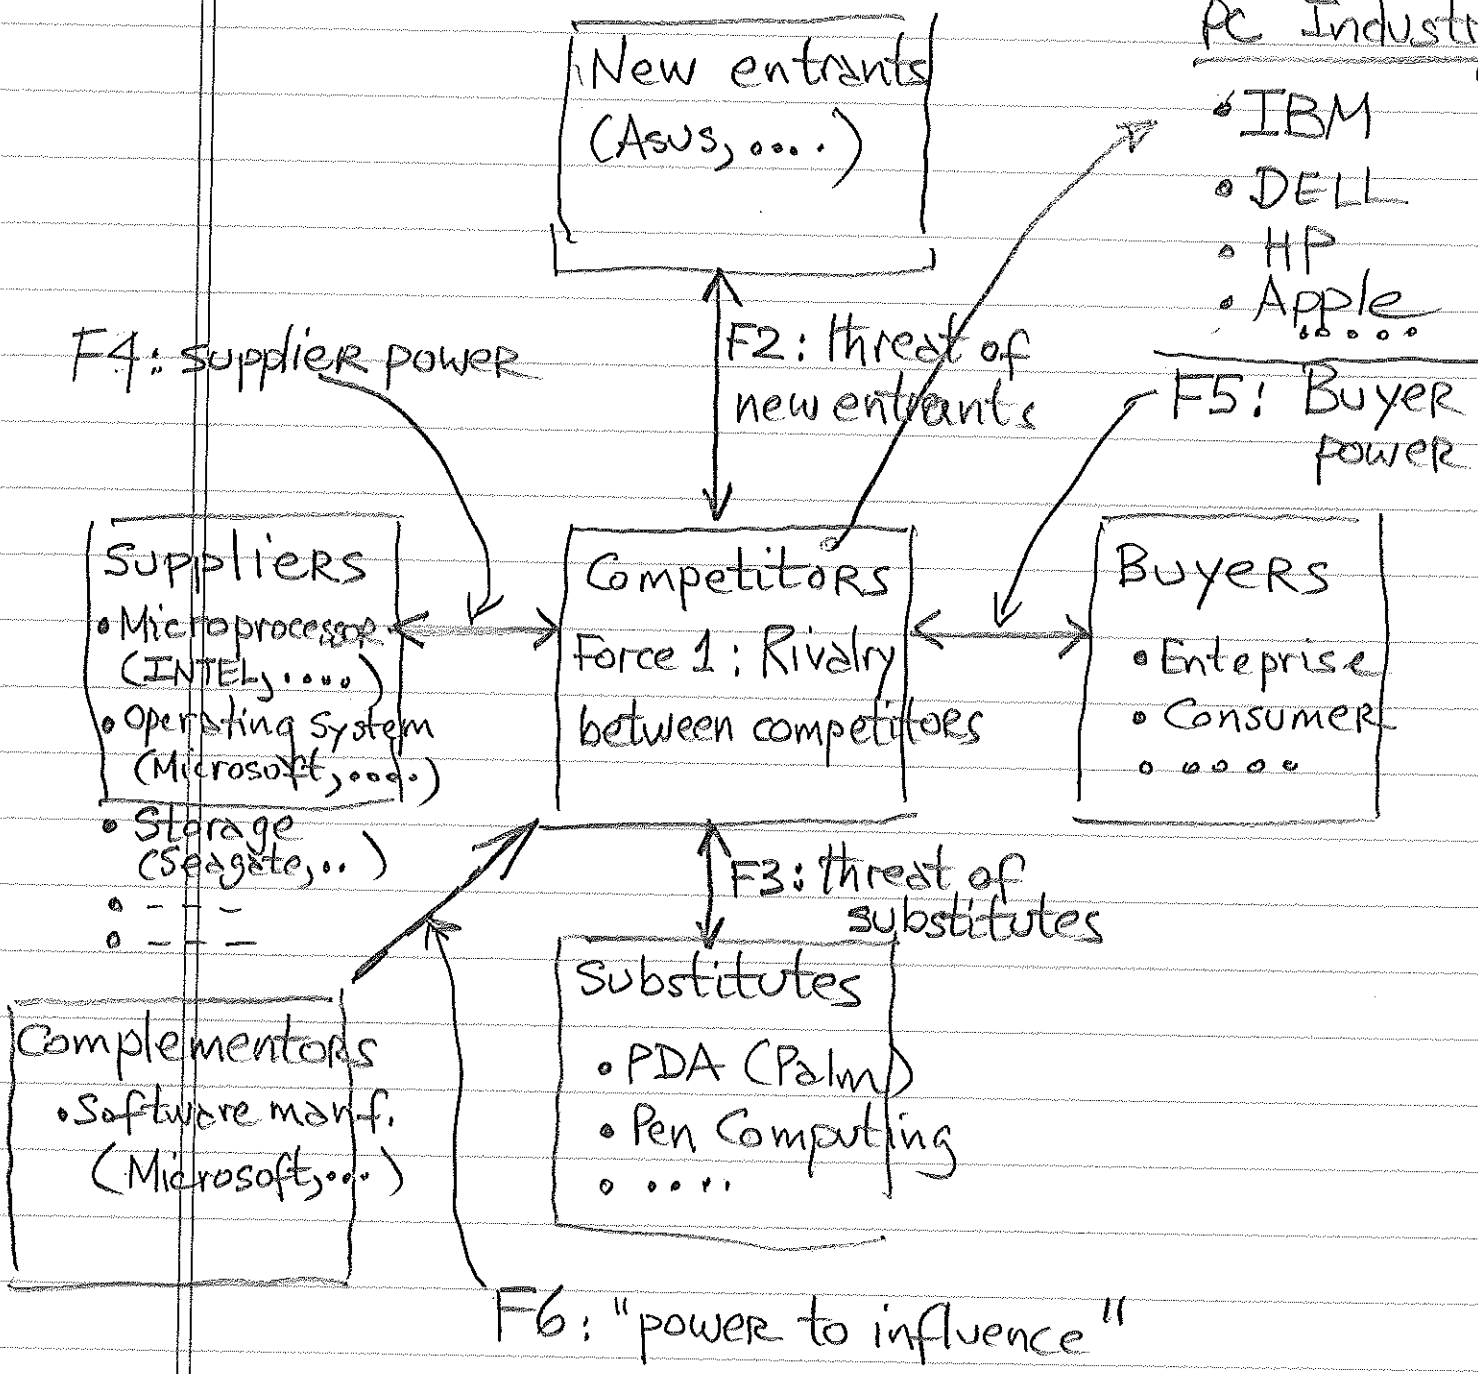 New entrants
(Asus, ....)
PC
IBM
DELL
HP
Apple
.....
F4: supplier power
F2: threat of
new entrants
F5: Buyer
power
Suppliers
• Microprocessor
(INTEL, ....)
• Operating System
(Microsoft, .....)
• Storage
(Seagate, ..)
• - - -
• - - -
Competitors
Force 1: Rivalry
between competitors
Buyers
• Enteprise
• Consumer
• ....
F3: threat of
substitutes
Substitutes
• PDA (Palm)
• Pen Computing
• ....
Complementors
• Software manf.
(Microsoft, ...)
F6: "power to influence"